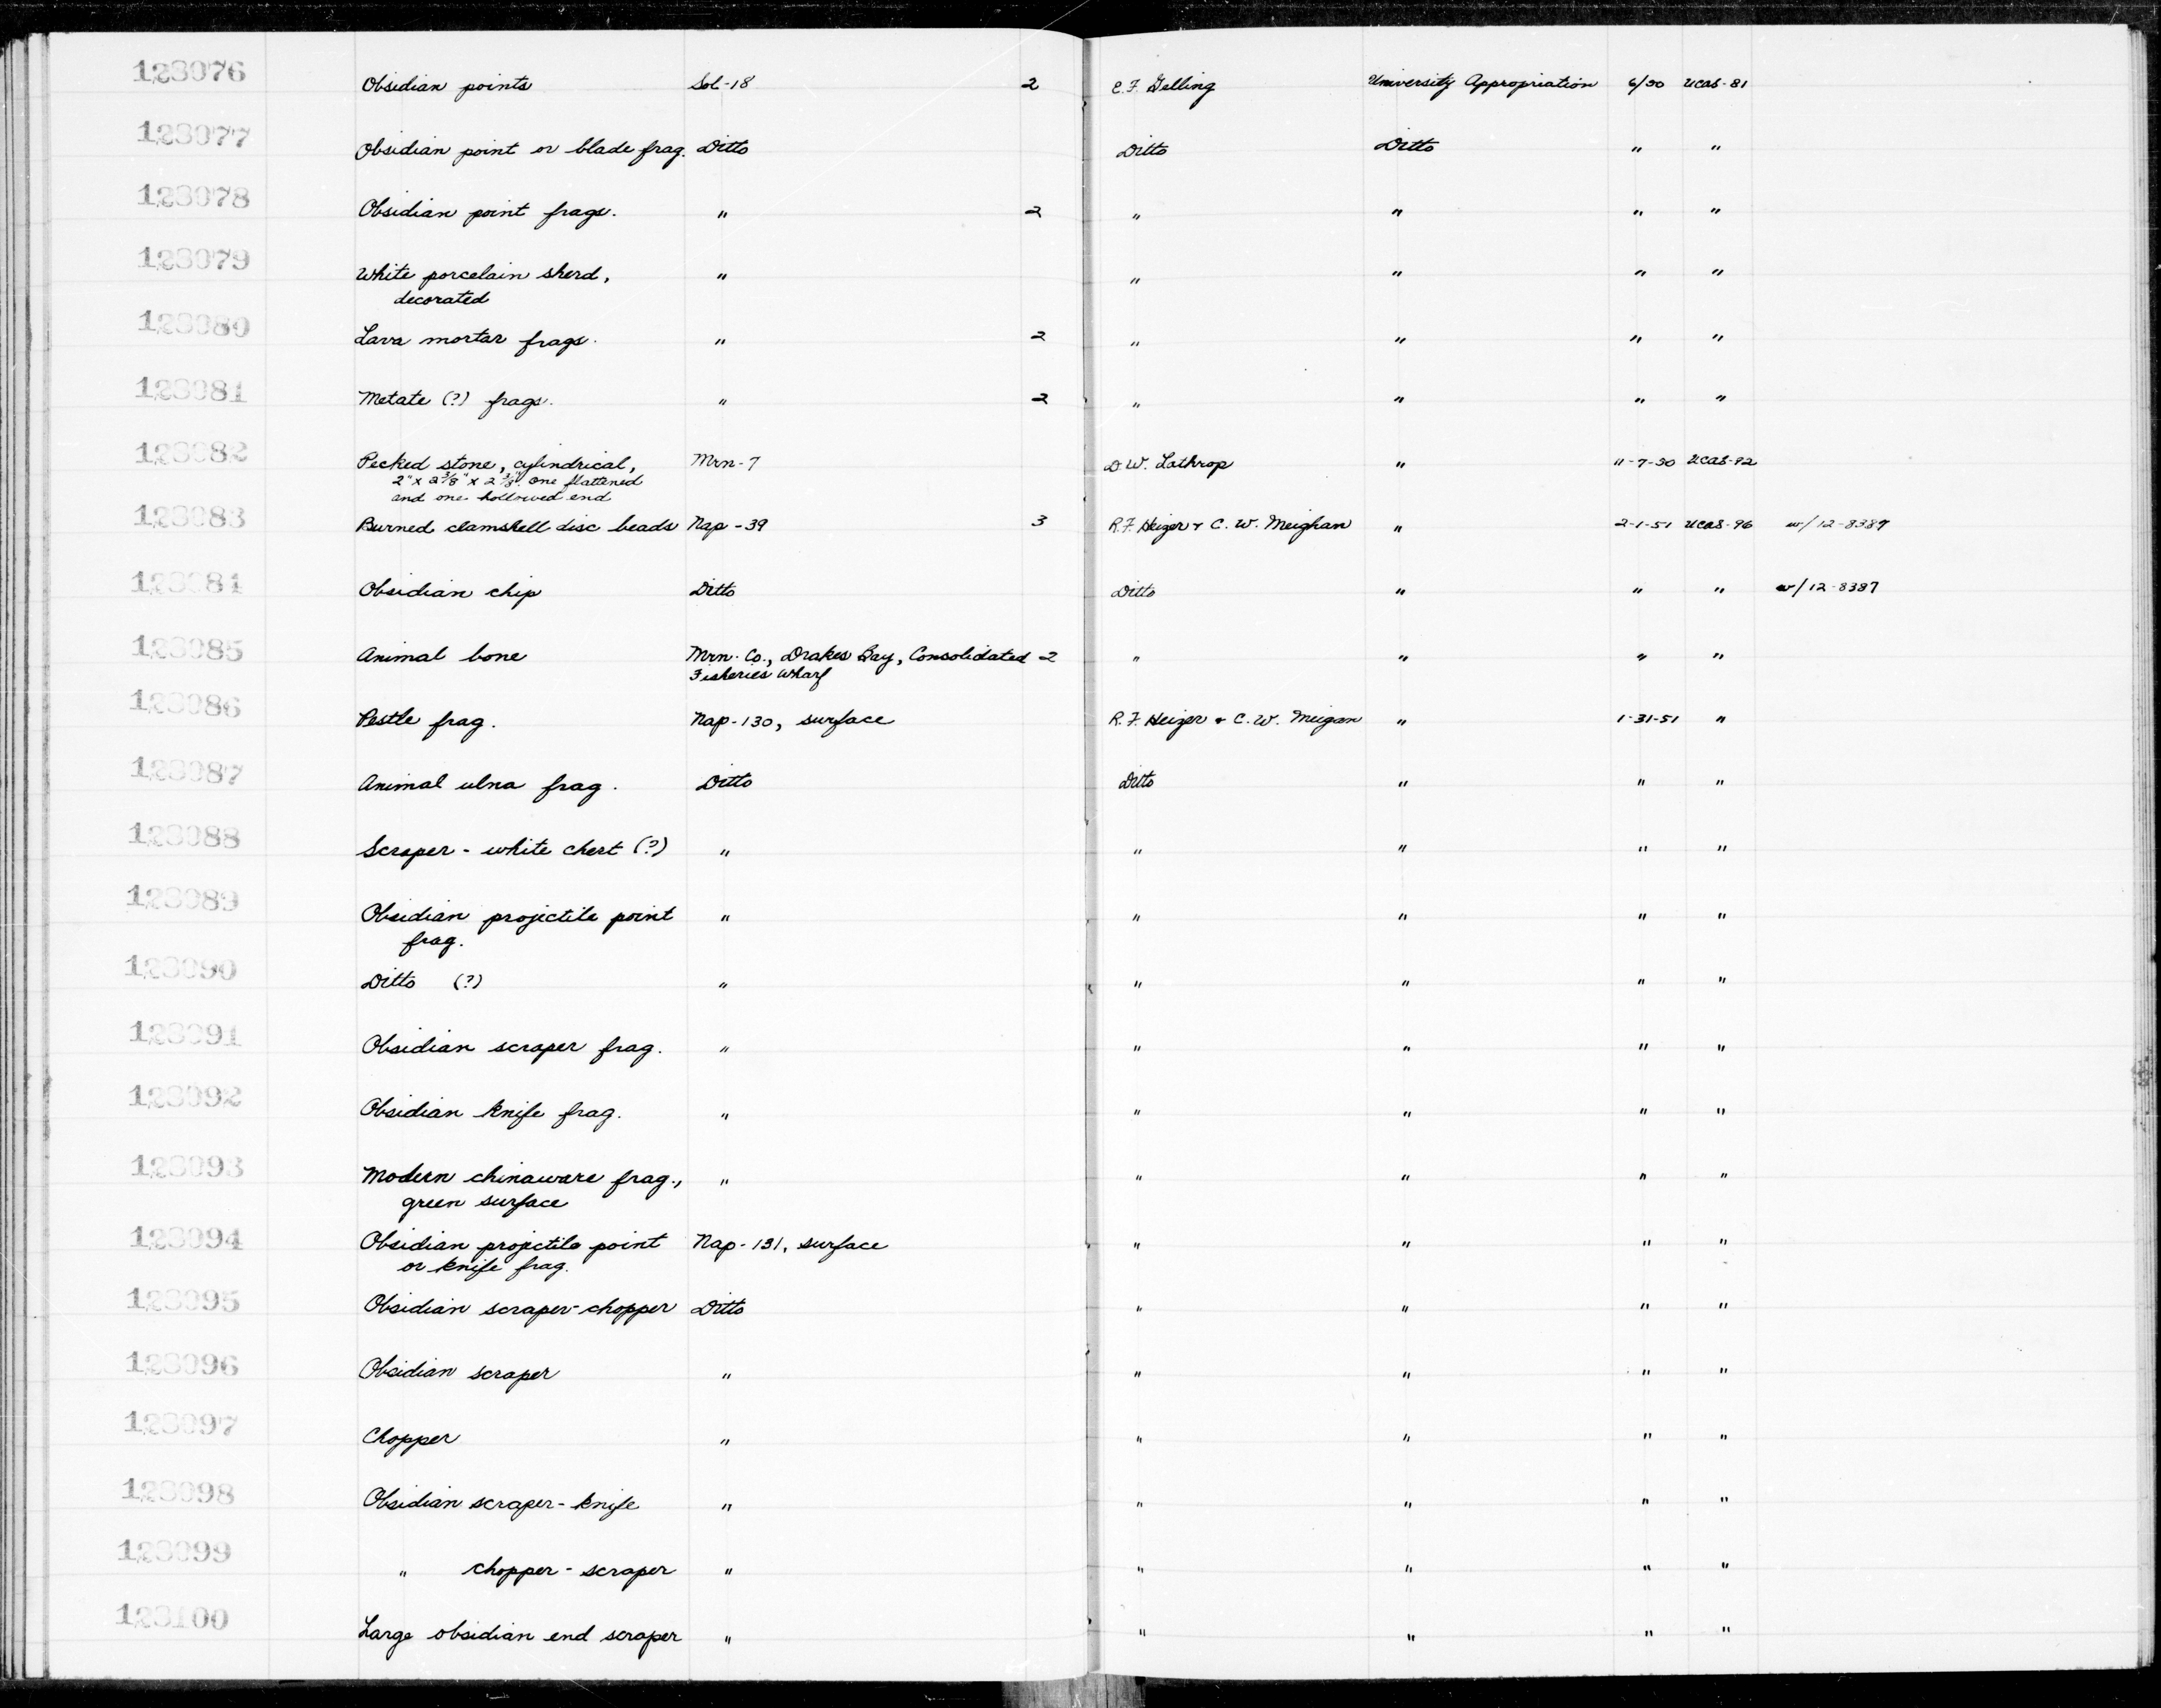 123076 Obsidian points Sol-18 2 E.F. Gelling University Appropriation 6/50 UCAS-81
123077 Obsidian point or blade frag. Ditto Ditto Ditto " "
123078 Obsidian point frags. " 2 " " " "
123079 White porcelain sherd, " " " " "
decorated
123080 Lava mortar frags. " 2 " " " "
123081 Metate (?) frags. " 2 " " " "
123082 Pecked stone, cylindrical, Mrn-7 D.W. Lathrop " 11-7-50 UCAS-92
2" x 2 3/8" x 2 3/8". one flattened
and one hollowed end
123083 Burned clamshell disc beads Nap-39 3 R.F. Heizer & C.W. Meighan " 2-1-51 UCAS-96 w/12-8387
123084 Obsidian chip Ditto Ditto " " " w/12-8387
123085 Animal bone Mrn. Co., Drakes Bay, Consolidated 2 " " " "
Fisheries Wharf
123086 Pestle frag. Nap-130, surface R.F. Heizer & C.W. Meigan " 1-31-51 "
123087 Animal ulna frag. Ditto Ditto " " "
123088 Scraper - white chert (?) " " " " "
123089 Obsidian projectile point " " " " "
frag.
123090 Ditto (?) " " " " "
123091 Obsidian scraper frag. " " " " "
123092 Obsidian knife frag. " " " " "
123093 Modern chinaware frag., " " " " "
green surface
123094 Obsidian projectile point Nap-131, surface " " " "
or knife frag.
123095 Obsidian scraper-chopper Ditto " " " "
123096 Obsidian scraper " " " " "
123097 Chopper " " " " "
123098 Obsidian scraper-knife " " " " "
123099 " chopper-scraper " " " " "
123100 Large obsidian end scraper " " " " "